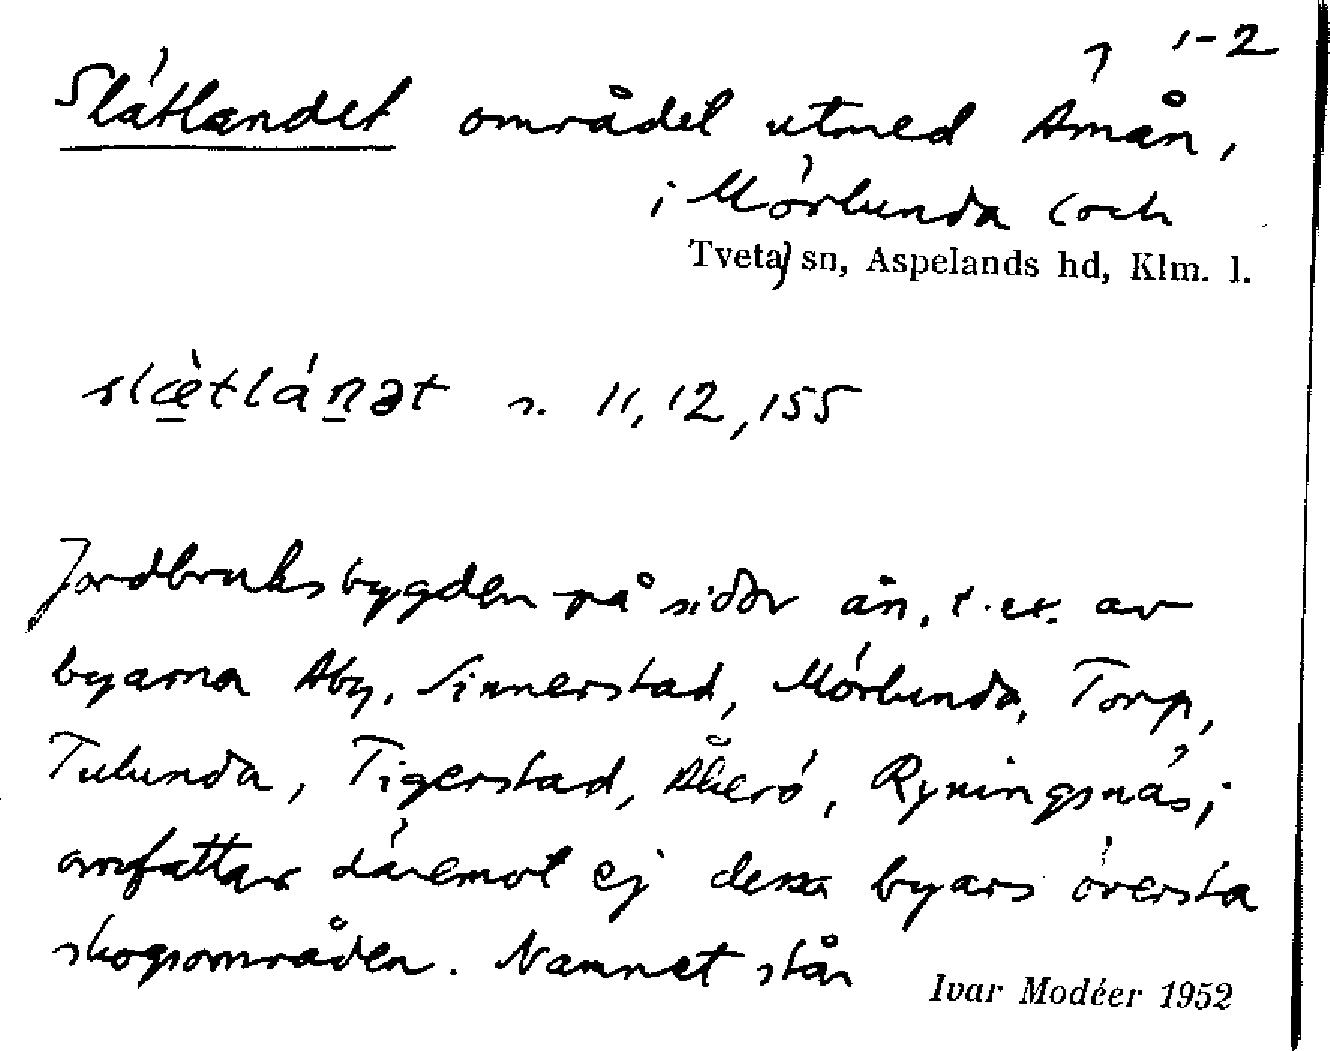 1-2
Slätlandet området utmed Åmån,
i Mörlunda (och
Tveta) sn, Aspelands hd, Klm. l.
slæ̀tlánət n. 11, 12, 155
Jordbruksbygden på sidor ån, t. ex. av
byarna Åby, Sinnerstad, Mörlunda, Torp,
Tulunda, Tigerstad, Åkerö, Ryningsnäs;
omfattar däremot ej dessa byars översta
skogsområden. Namnet står
Ivar Modéer 1952